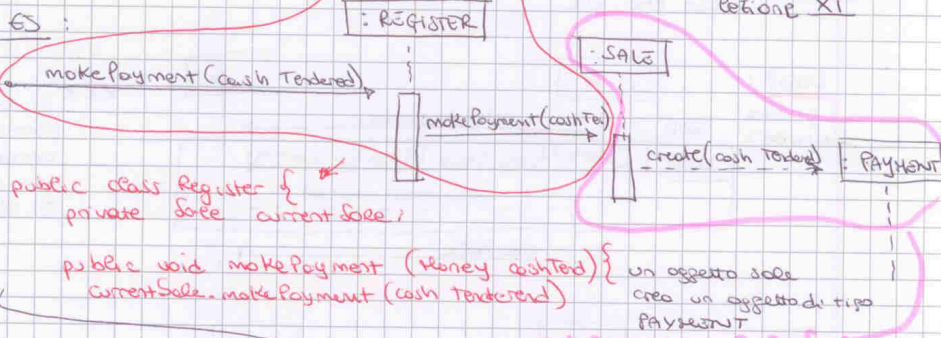 lezione XI
ES :
: REGISTER
: SALE
makePayment (cash Tendered)
makePayment (cashTen)
create (cash Tendered)
: PAYMENT
public class Register {
private Sale currentSale;
public void makePayment (Money cashTend) {
currentSale.makePayment (cash Tenderend)
un oggetto sale
crea un oggetto di tipo
PAYMENT